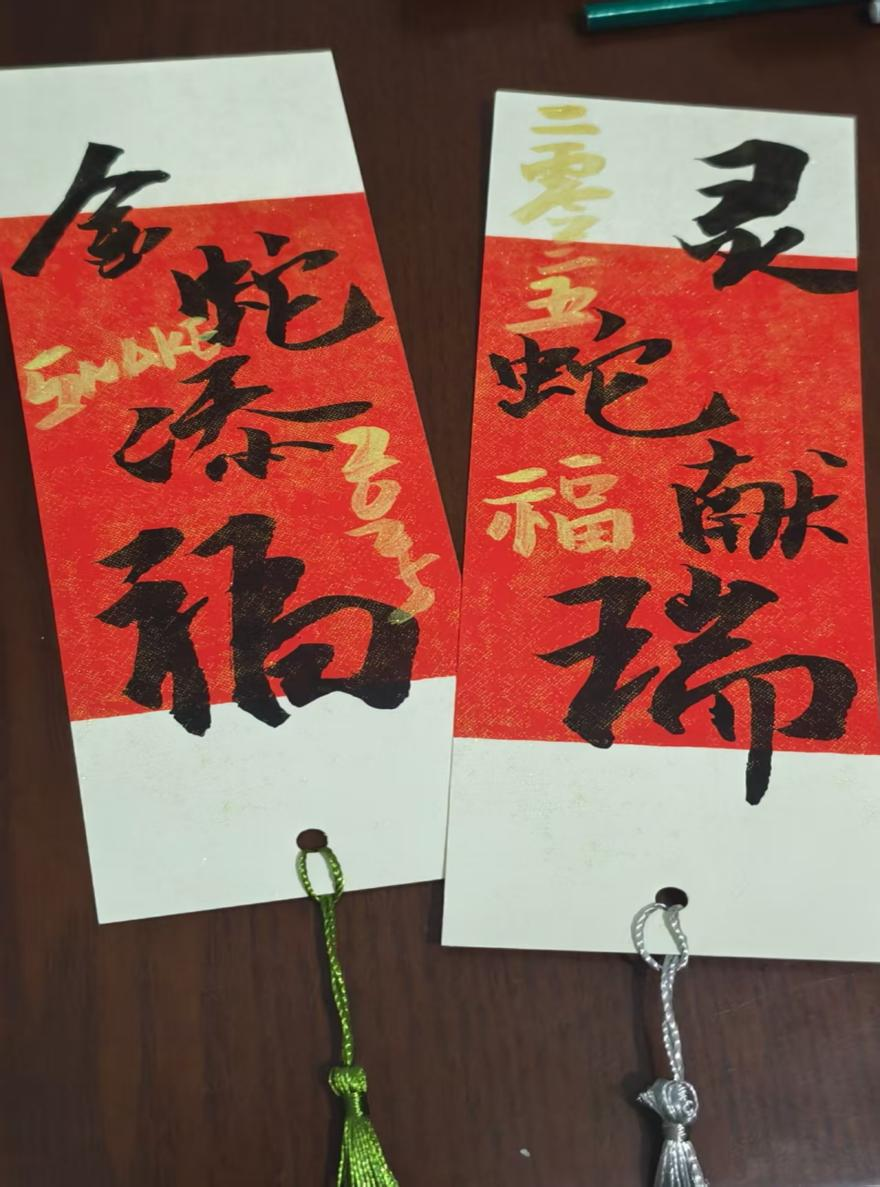 金蛇添福
SNAKE
2025
灵蛇献瑞
二零二五
福